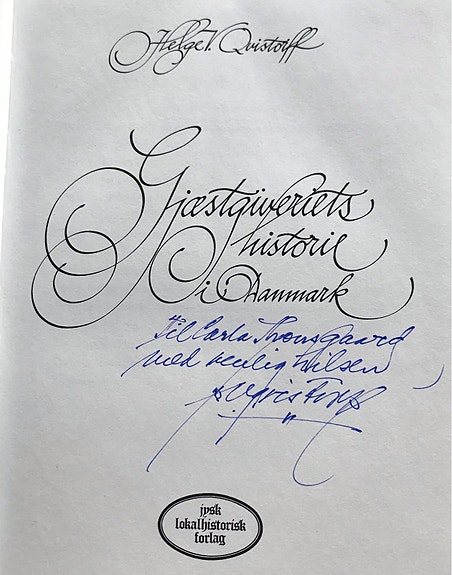 Helge V. Qvistorff
Gjæstgiveriets
historie
i Danmark
Til Carla Thomsgaard
med venlig hilsen
HVQvistorff
jysk
lokalhistorisk
forlag